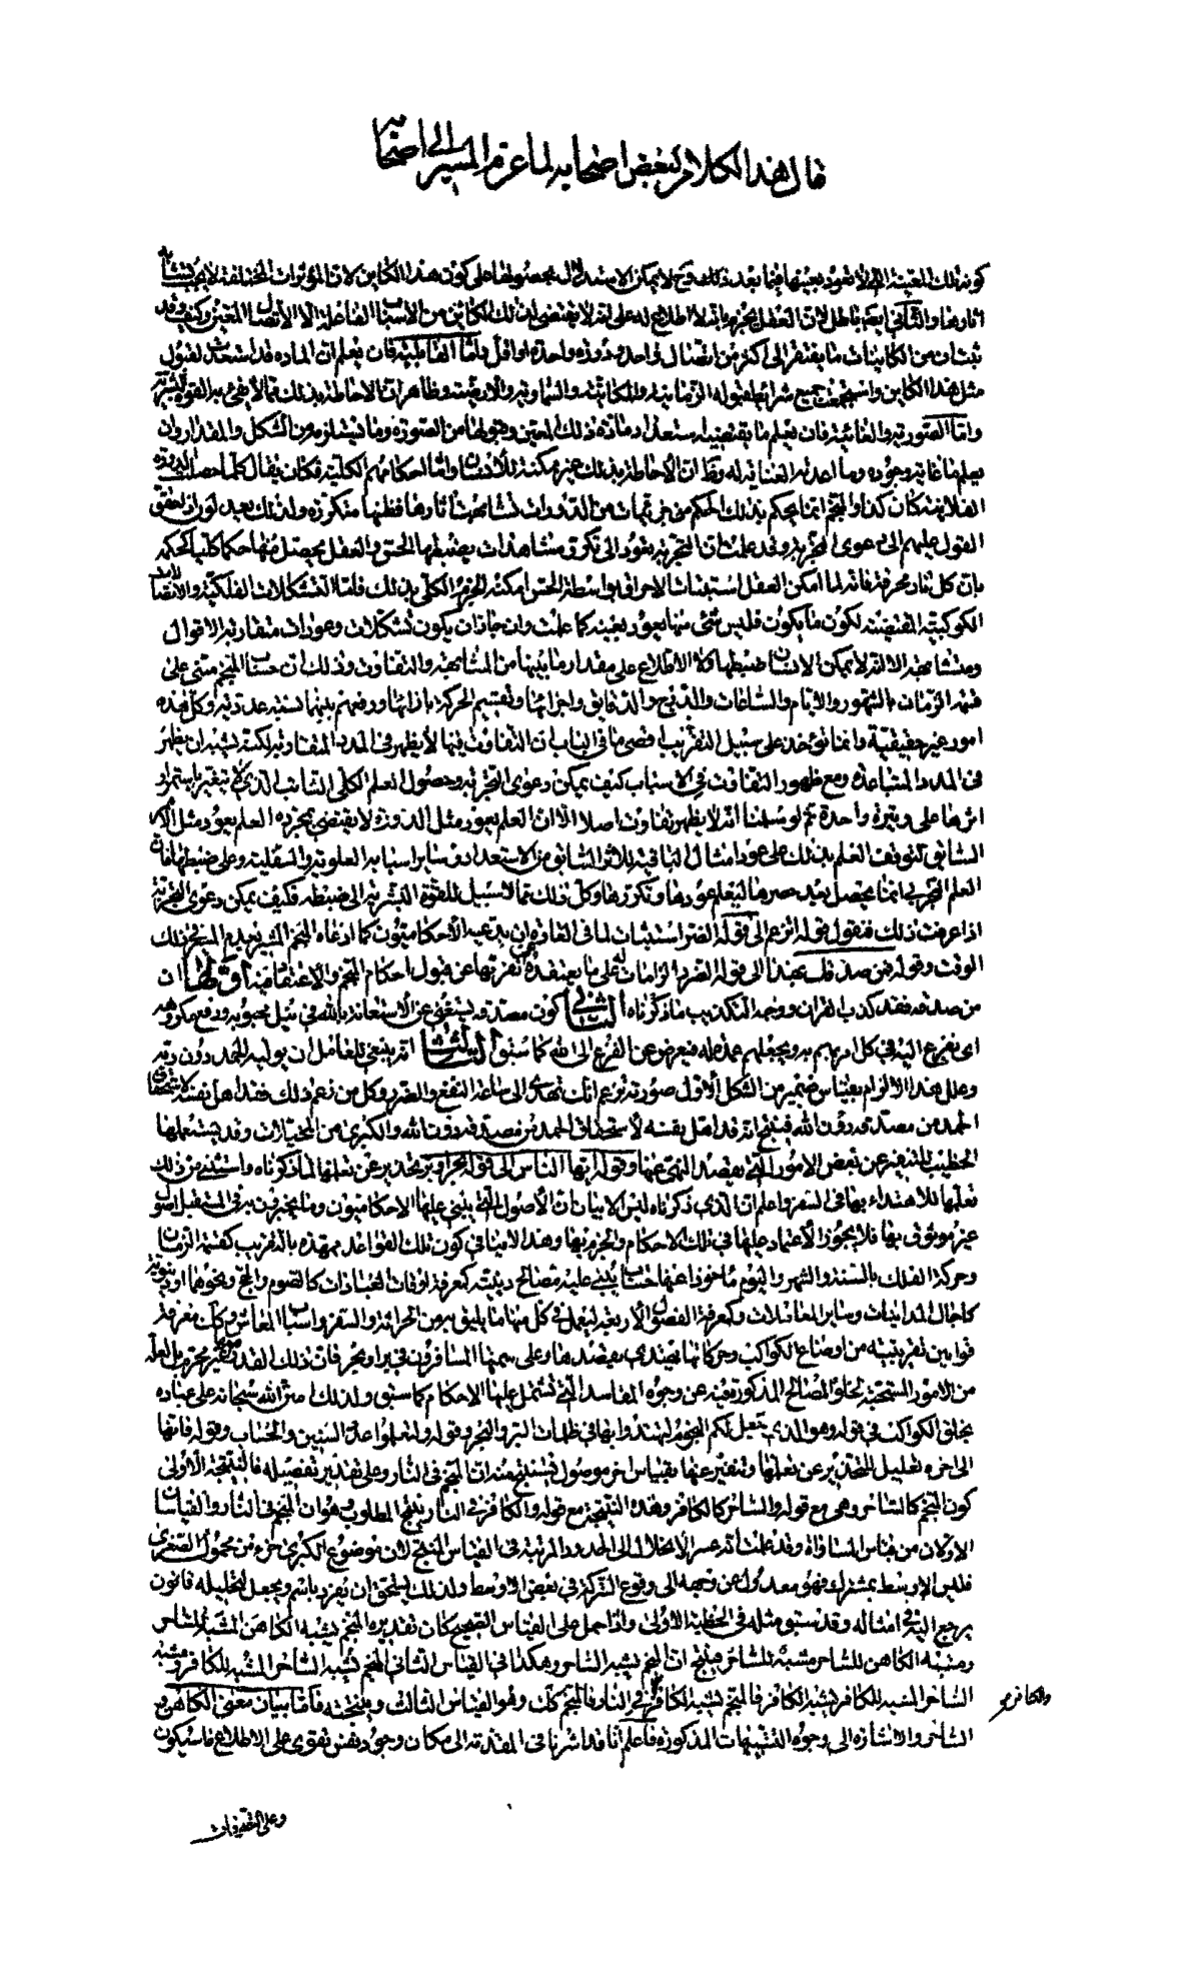 قال هذا الكلام لبعض اصحابه لما عزم المسير الى اصحابه
كون تلك المعينة التي لا تعود بعينها فيما بعد ذلك وح لا يمكن الاستدلال بحصولها على كون هذا الكاين لان المؤثرات المختلفة لا يجب تشابه
اثارها والثاني ايضا باطل لان العقل يجزم بانه لا اطلاع له على انه لا يقتضى لذلك الكاين من الاسباب الفاعلة الا الاتصال المعين وكيف وقد
ثبت ان من الكاينات ما يفتقر الى اكثر من اتصال واحد ودورة واحدة او اقل واما القابلية فان يعلم ان المادة قد استعدت لقبول
مثل هذا الكاين واستجمعت جميع شرائط قبوله الزمانية والمكانية والسماوية والارضية وظاهر ان الاحاطة بذلك مما لا يفى به القوة البشرية
واما الصورية والغائية فان يعلم ما يقتضيه استعداد مادة ذلك المعين وقبولها من الصورة وما يستلزمه من الشكل والمقدار وان
يعلم ما غاية وجوده وما اعدته العناية له وظ ان الاحاطة بذلك غير ممكنة للانسان واما احكامهم الكلية فكان يقال كلما حصلت الدورة
الفلانية كان كذا والمنجم انما يحكم بذلك الحكم من جزئيات من الدورات تشابهت اثارها فظنها متكررة ولذلك يعدلون اذا حقق
القول عليهم الى دعوى التجربة وقد علمت ان التجربة تعود الى تكرر مشاهدات يضبطها الحس والعقل يحصل منها حكما كليا كحكمه
بان كل نار محرقة فانه لما امكن العقل استثبات الاحراق بواسطة الحس امكنه الجزم الكلى بذلك فاما التشكلات الفلكية والاتصالات
الكوكبية المقتضية لكون ما يكون فليس شئ منها يعود بعينه كما علمت وان جاز ان يكون تشكلات وعودات متقاربة الاحوال
ومتشابهة الا انه لا يمكن الانسان ضبطها ولا الاطلاع على مقدار ما بينها من المشابهة والتفاوت وذلك ان حساب المنجم مبنى على
قسمة الزمان بالشهور والايام والساعات والدرج والدقايق واجزائها وتقسيم الحركة بازائها ورفعهم بينهما نسبة عددية وكل هذه
امور غير حقيقية وانما تؤخذ على سبيل التقريب اقصى ما فى الباب ان التفاوت فيها لا يظهر فى المدد المتقاربة لكنه يشبه ان يظهر
فى المدد المتباعدة ومع ظهور التفاوت فى الاسباب كيف يمكن دعوى التجربة وحصول العلم الكلى الثابت الذى لا يتغير باستمرار
اثرها على وتيرة واحدة ثم لو سلمنا انه لا يظهر تفاوت اصلا الا ان العلم بعود مثل الدورة لا يقتضى بمجرده العلم بعود مثل الاثر
السابق لتوقف العلم بذلك على عود امثال الباقية للاثر السابق من الاستعداد وساير اسبابه العلوية والسفلية وعلى ضبطها فان
العلم التجربى انما يحصل بعد حصرها ليعلم عودها وتكررها وكل ذلك مما لا سبيل للقوة البشرية الى ضبطه فكيف يمكن دعوى التجربة
اذا عرفت ذلك فنقول قوله اتزعم الى قوله الضر استثبات لما فى العادة ان يدعيه الاحكاميون كما ادعاه المنجم المشير بعدم المسير فى ذلك
الوقت وقوله فمن صدقك بهذا الى قوله الضر الزامات له على ما يعتقده عن نفرتها عن قبول احكام المنجم والاعتقاد فيه اولها ان
من صدقه فقد كذب القران ووجه التكذيب ما ذكرناه الثانى كون مصدقه يستغنى عن الاستعانة بالله فى نيل محبوبه ودفع مكروهه
اى يفزع اليه فى كل امر يهم به ويجعلهم عمدة له فيعرض عن الفزع الى الله كما سبق الثالث انه ينبغى للعامل ان يوليه الحمد دون ربه
وعلل هذا الالزام بقياس ضمير من الشكل الاول صورته تزعم انك تهدى الى ساعة النفع والضر وكل من زعم ذلك فقد اهل نفسه لاستحقاق
الحمد من مصدقه دون الله فينتج انه قد اهل نفسه لاستحقاق الحمد من مصدقه دون الله والكبرى من المخيلات وقد يستعملها
الخطيب للتنفير عن بعض الامور التى يقصد النهى عنها وقوله ايها الناس الى قوله بحر او بر تحذير عن تعلمها لما ذكرناه واستثنى من ذلك
تعلمها للاهتداء بها فى السفر واعلم ان الذى ذكرناه ليس الا بيان ان الاصول التى يبنى عليها الاحكاميون وما يخبرون به فى المستقبل اصول
غير موثوق بها فلا يجوز الاعتماد عليها فى تلك الاحكام والجزم بها وهذا لا ينافى كون تلك القواعد ممهدة بالتقريب كقسمة الزمان
وحركة الفلك بالسنة والشهر واليوم ماخوذا عنها حساب يبنى عليه مصالح دينية كمعرفة اوقات العبادات كالصوم والحج ونحوها او دنيوية
كاجال المداينات وساير المعاملات وكمعرفة الفصول الاربعة ليعمل فى كل منها ما يليق به من الحراثة والسفر واسباب المعاش وكذلك معرفة
قوانين تقريبية من اوضاع الكواكب وحركاتها يهتدى بقصدها وعلى سمتها المسافرون فى بر او بحر فان ذلك القدر منها غير محرم بل لعله
من الامور المستحبة لخلو المصالح المذكورة فيه عن وجوه المفاسد التى تشتمل عليها الاحكام كما سبق ولذلك امتن الله سبحانه على عباده
بخلق الكواكب فى قوله وهو الذى جعل لكم النجوم لتهتدوا بها فى ظلمات البر والبحر وقوله ولتعلموا عدد السنين والحساب وقوله فانها
الى اخره تعليل للتحذير عن تعلمها وتنفير عنها بقياس اخر موصول يستنتج منه ان المنجم فى النار وعلى تقدير تفصيله فالنتيجة الاولى
كون المنجم كالساحر وهى مع قوله والساحر كالكافر وهذه النتيجة مع قوله والكافر فى النار ينتج المطلوب وهو ان المنجم فى النار والقياسان
الاولان من قياس المساواة وقد علمت انه عسر الانحلال الى الحدود المرتبة فى القياس المنتج لان موضوع الكبرى جزء من محمول الصغرى
فليس الاوسط بمشترك فهو معدول عن وجهه الى وقوع الشركة فى بعض الاوسط ولذلك يستحق ان يفرد باسم ويجعل لتحليله قانون
يرجع اليه فى امثاله وقد سبق مثله فى الخطبة الاولى واذا حمل على القياس الصحيح كان تقديره المنجم يشبه الكاهن المشبه للساحر
ومشبه الكاهن للساحر مشبه للساحر فينتج ان المنجم يشبه الساحر وهكذا فى القياس الثانى المنجم يشبه الساحر المشبه للكافر ومشبه
الساحر المشبه للكافر يشبه الكافر فالمنجم يشبه الكافر فى النار فالمنجم كذلك وهو القياس الثالث ونتيجته فاما بيان معنى الكاهن و
والكافر
الساحر والاشارة الى وجوه التشبيهات المذكورة فاعلم انا قد اشرنا فى المقدمة الى مكان وجود نفس تقوى على الاطلاع على ما سيكون
وعلى التصرفات